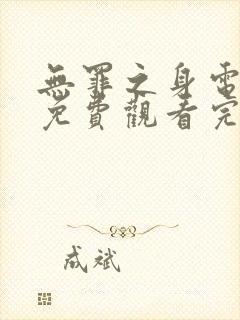 無罪之身電
免費觀看完
成斌